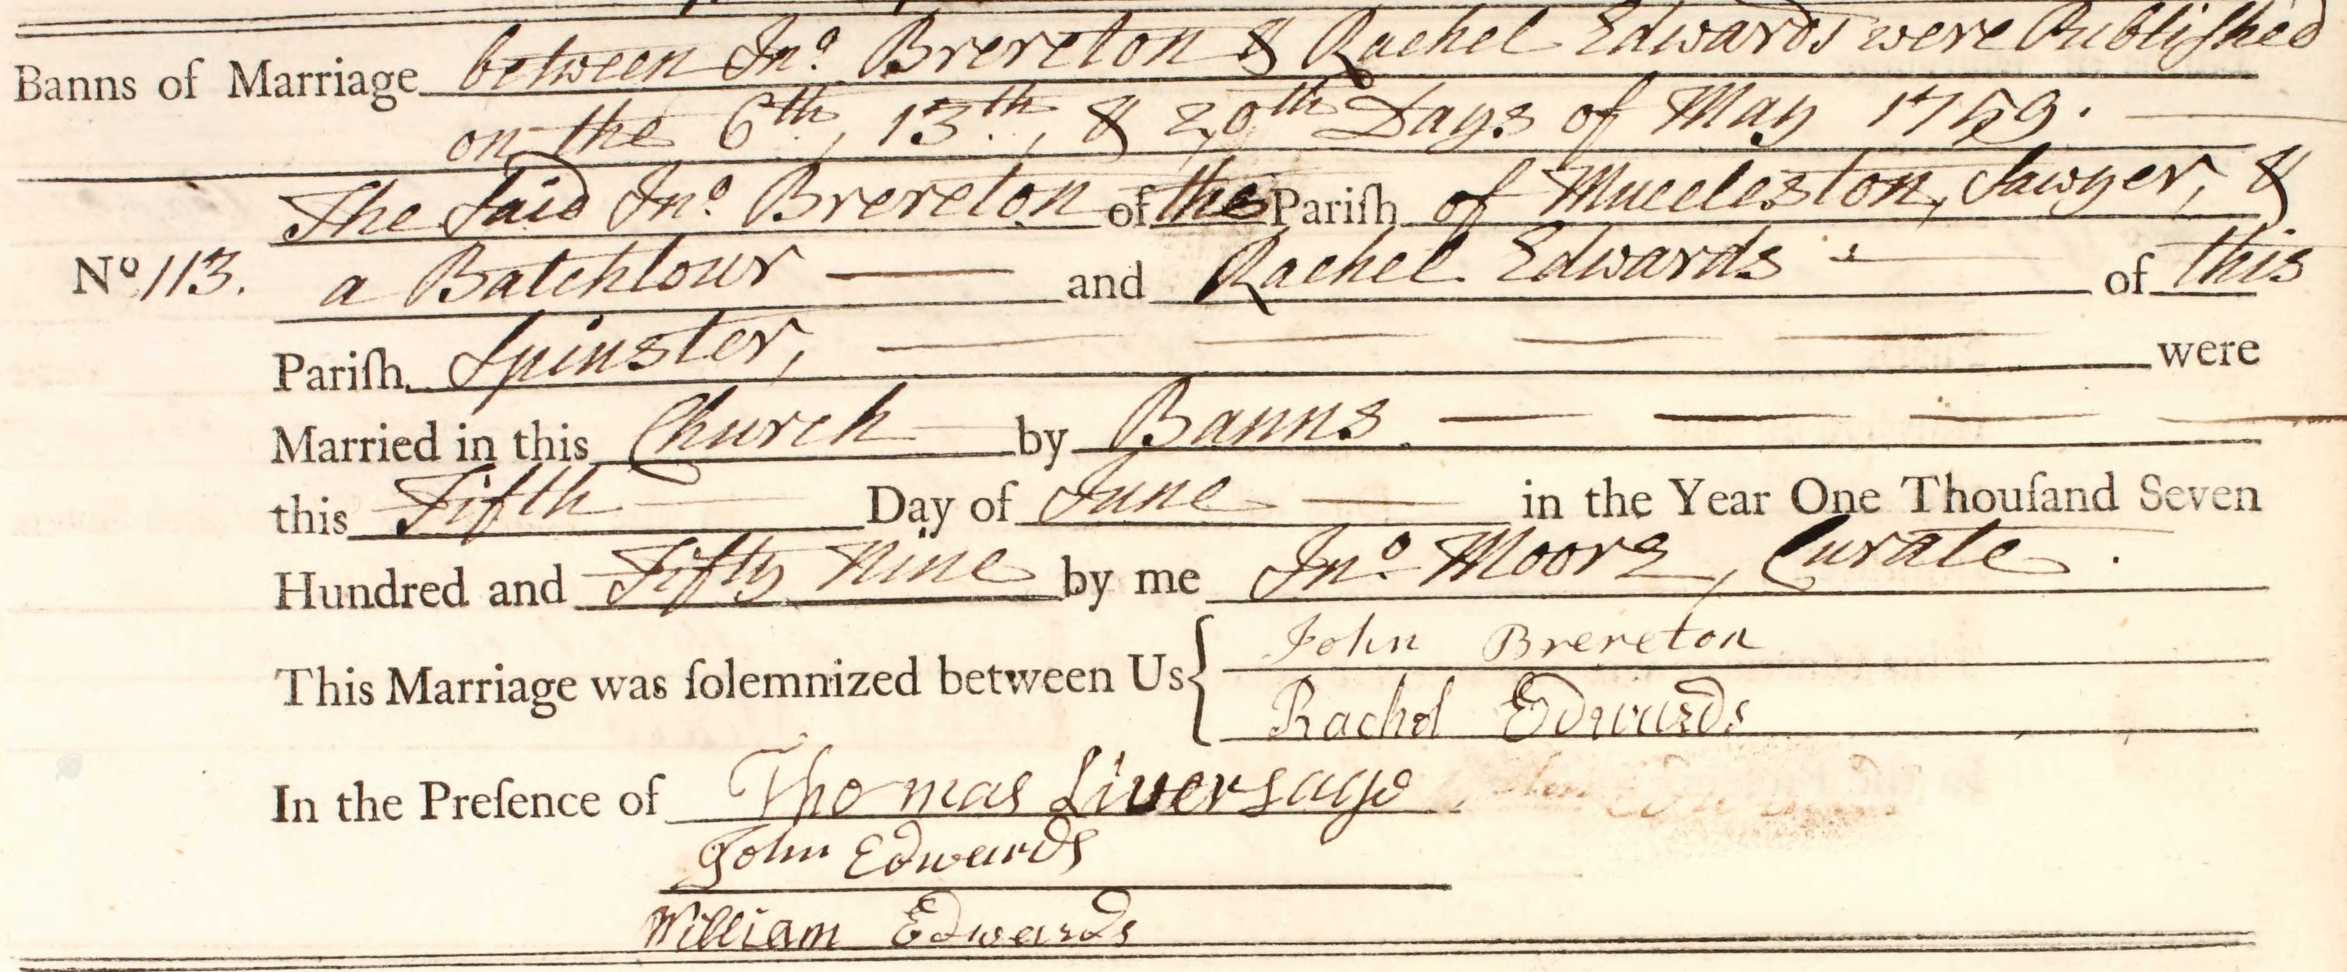 Banns of Marriage between Jnº. Brereton & Rachel Edwards were Publiſhed
on the 6th, 13th, & 20th Days of May 1759.
The Said Jnº. Brereton of the Pariſh of Muccleston, Sawyer, &
Nº 113. a Batchlour and Rachel Edwards of this
Pariſh Spinster, were
Married in this Church by Banns.
this Fifth Day of June in the Year One Thouſand Seven
Hundred and Fifty Nine by me Jnº. Moore, Curate.
This Marriage was ſolemnized between Us { John Brereton
Rachel Edwards
In the Preſence of Thomas Liversage
John Edwards
William Edwards